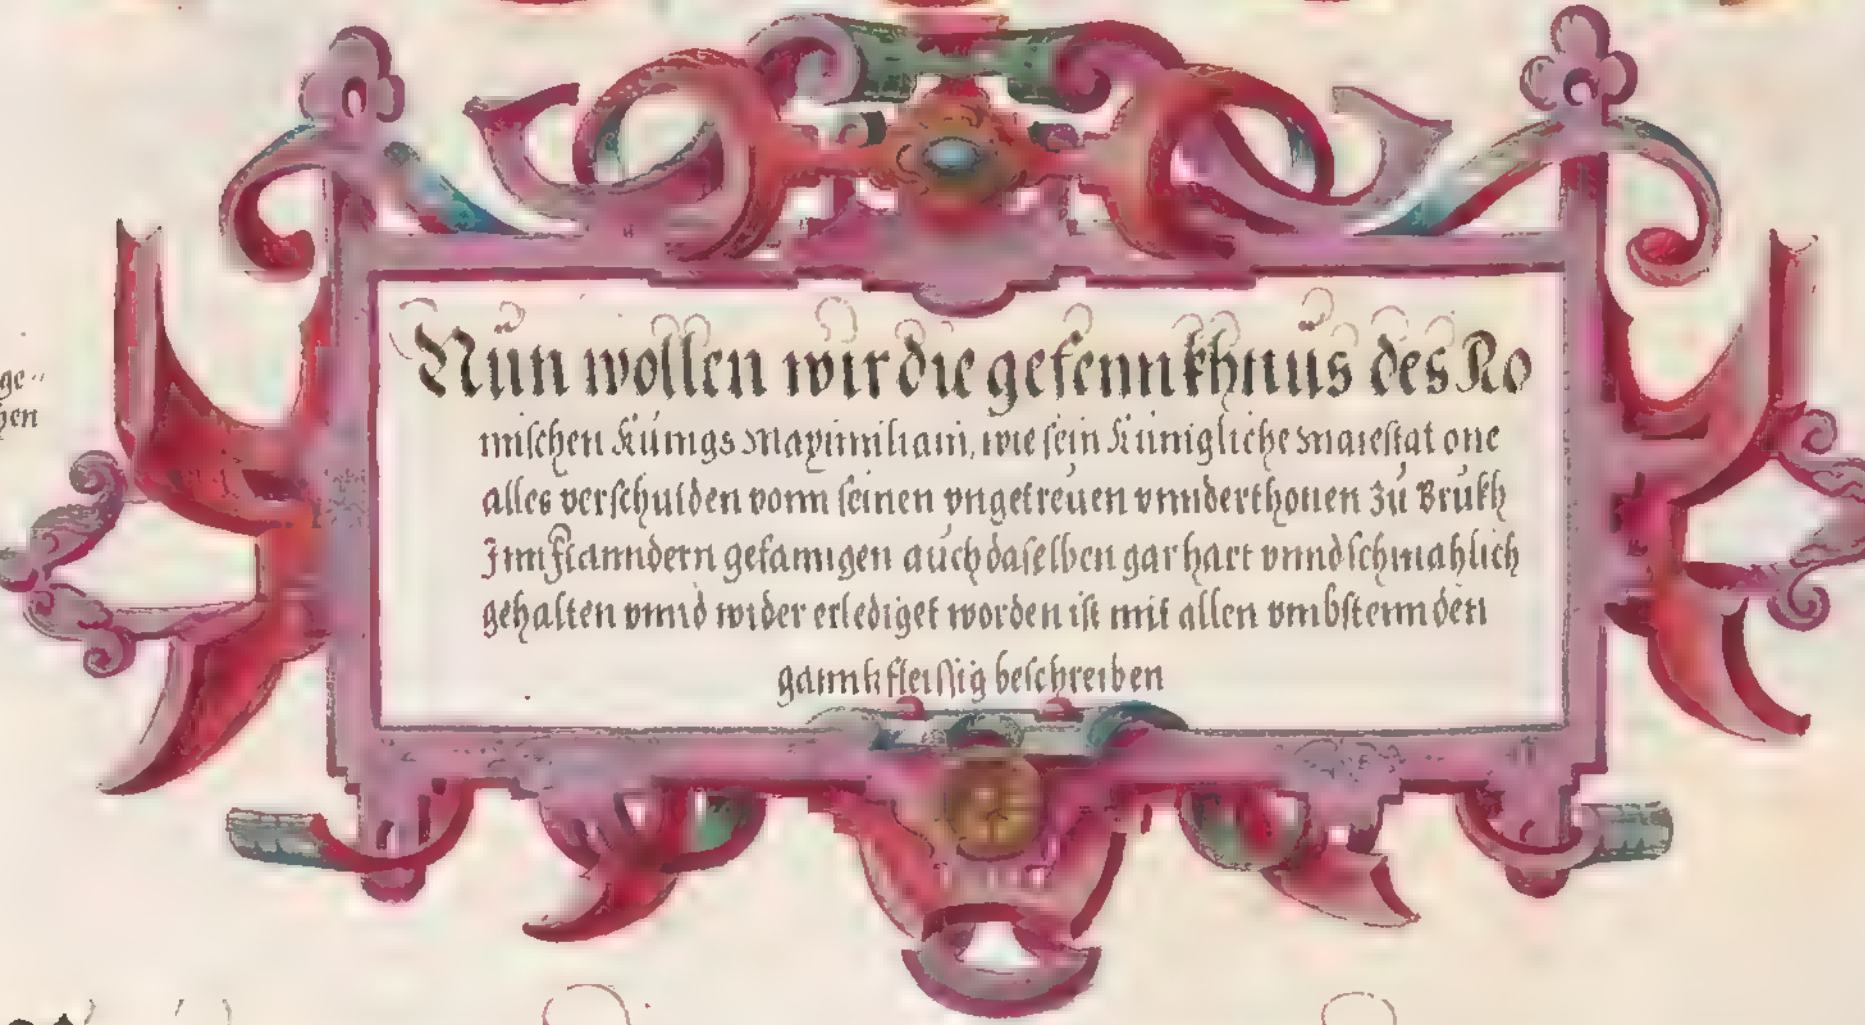 ge-
hen
Nun wollen wir die gefennkhnus des Ro
mischen Künigs Maximiliani, wie sein Künigliche Maiestat one
alles verschulden vonn seinen vngetreuen vnnderthonen zu Brukh
Inn Flanndern gefanngen auch daselben gar hart vnnd schmahlich
gehalten vnnd wider erlediget worden ist mit allen vmbstennden
gannh fleissig beschreiben